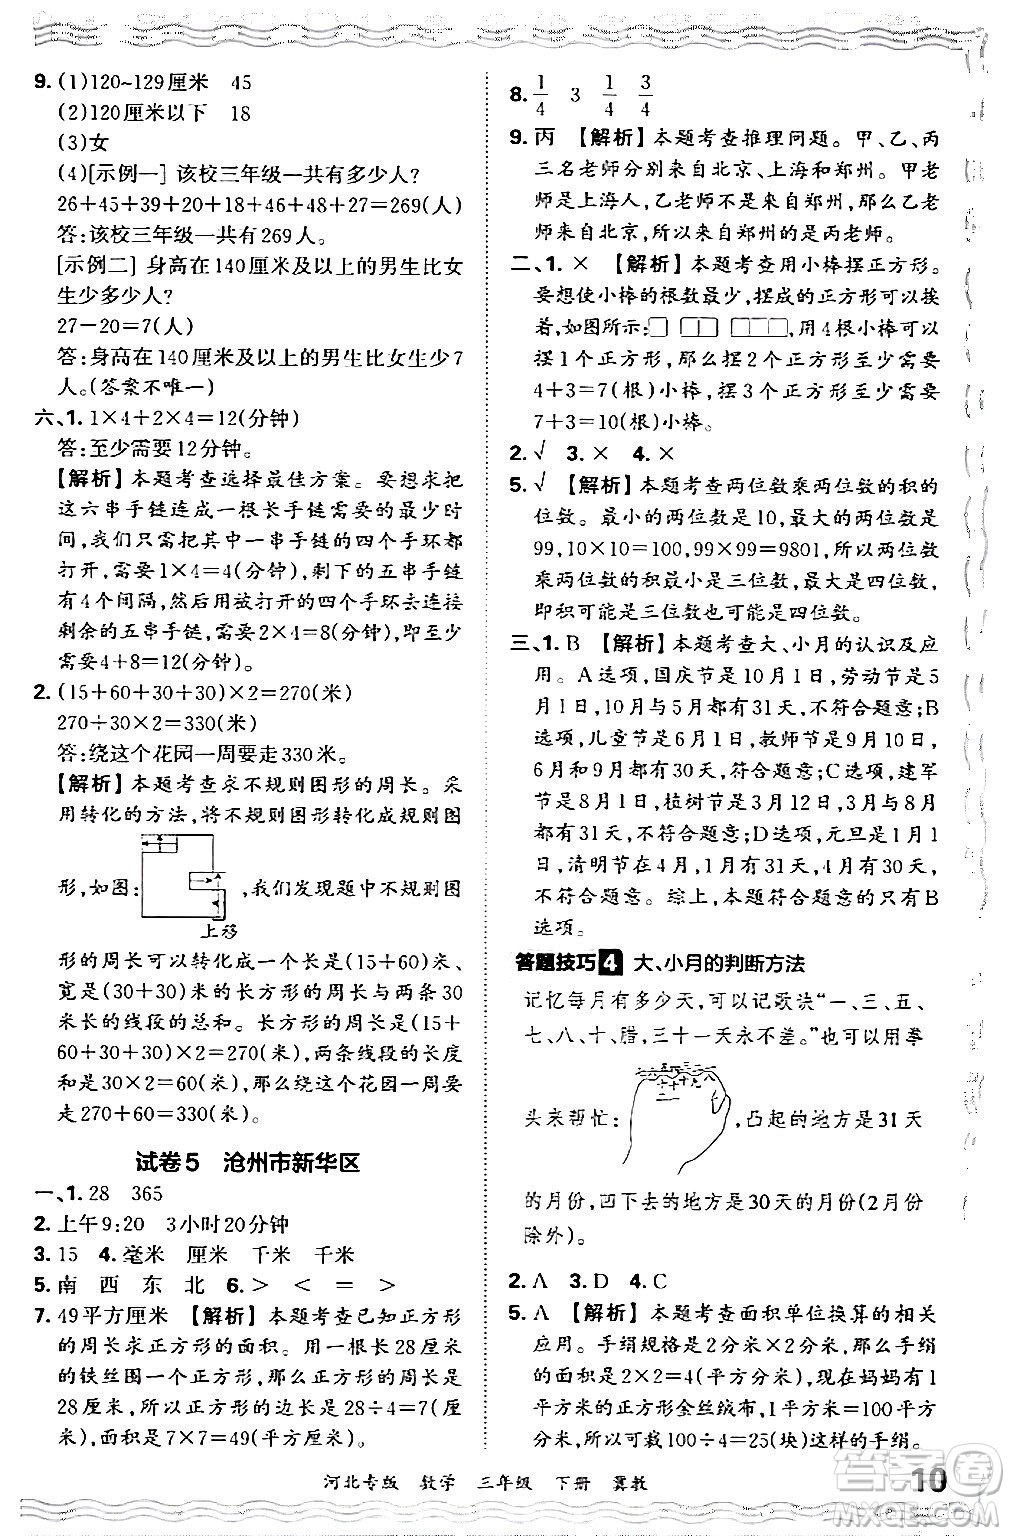 9. (1)120~129厘米 45
(2)120厘米以下 18
(3)女
(4)[示例一] 该校三年级一共有多少人?
26+45+39+20+18+46+48+27=269(人)
答:该校三年级一共有269人。
[示例二] 身高在140厘米及以上的男生比女
生少多少人?
27-20=7(人)
答:身高在140厘米及以上的男生比女生少7
人。(答案不唯一)
六、1. 1×4+2×4=12(分钟)
答:至少需要12分钟。
【解析】本题考查选择最佳方案。要想求把
这六串手链连成一根长手链需要的最少时
间,只需将其中一串手链的四个手环都
打开,需要1×4=4(分钟),剩下的五串手链
有4个间隔,然后用被打开的四个手环去连接
剩余的五串手链,需要2×4=8(分钟),至少
需要4+8=12(分钟)。
2. (15+60+30+30)×2=270(米)
270+30×2=330(米)
答:绕这个花园一周要走330米。
【解析】本题考查求不规则图形的周长。采
用转化的方法,将不规则图形转化成规则图
形,如图: ,我们发现题中不规则图
上移
形的周长可以转化成一个长是(15+60)米、
宽是(30+30)米的长方形的周长与两条30
米长的线段的总和。长方形的周长是(15+
60+30+30)×2=270(米),两条线段的长度
和是30×2=60(米),那么绕这个花园一周要
走270+60=330(米)。
试卷5 沧州市新华区
一、1. 28 365
2. 上午9:20 3小时20分钟
3. 15 4. 毫米 厘米 千米 千米
5. 南 西 东 北 6. > < = >
7. 49平方厘米 【解析】本题考查已知正方形
的周长求正方形的面积。用一根长28厘米
的铁丝围一个正方形,正方形的周长是28厘
米,所以正方形的边长是28÷4=7(厘米),面
积是7×7=49(平方厘米)。
8. 1/4 3 1/4 3/4
9. 丙 【解析】本题考查推理问题。甲、乙、丙
三名老师分别来自北京、上海和郑州。甲老
师是上海人,乙老师不是来自郑州,那么乙老
师来自北京,所以来自郑州的是丙老师。
二、1. × 【解析】本题考查用小棒摆正方形。
要想使小棒的根数最少,摆成的正方形可以挨
着,如图所示: ,用4根小棒可以
摆1个正方形,那么摆2个正方形至少需要
4+3=7(根)小棒,摆3个正方形至少需要
7+3=10(根)小棒。
2. √ 3. × 4. ×
5. √ 【解析】本题考查两位数乘两位数的积的
位数。最小的两位数是10,最大的两位数是
99,10×10=100,99×99=9801,所以两位数
乘两位数的积最小是三位数,最大是四位数,
即积可能是三位数也可能是四位数。
三、1. B 【解析】本题考查大、小月的认识及应
用。A选项,国庆节是10月1日,劳动节是
5月1日,10月和5月都有31天,不符合题意;B
选项,儿童节是6月1日,教师节是9月10日,
6月和9月都有30天,符合题意;C选项,建军
节是8月1日,植树节是3月12日,3月和8月
都有31天,不符合题意;D选项,元旦是1月1
日,清明节在4月,1月有31天,4月有30天,
不符合题意。综上,本题中符合题意的只有B
选项。
答题技巧4 大、小月的判断方法
记忆每月有多少天,可以记歌诀“一、三、五、
七、八、十、腊,三十一天永不差。”也可以用拳
头来帮忙: ,凸起的地方是31天
的月份,凹下去的地方是30天的月份(2月份
除外)。
2. A 3. D 4. C
5. A 【解析】本题考查面积单位换算的相关
应用。手绢规格是2分米×2分米,每块手绢
的面积是2×2=4(平方分米),现在妈妈有1
平方米的正方形金丝绒布,1平方米=100平方
分米,所以可裁100÷4=25(块)这样的手绢。
河北专版 数学 三年级 下册 冀教
10
答案圈